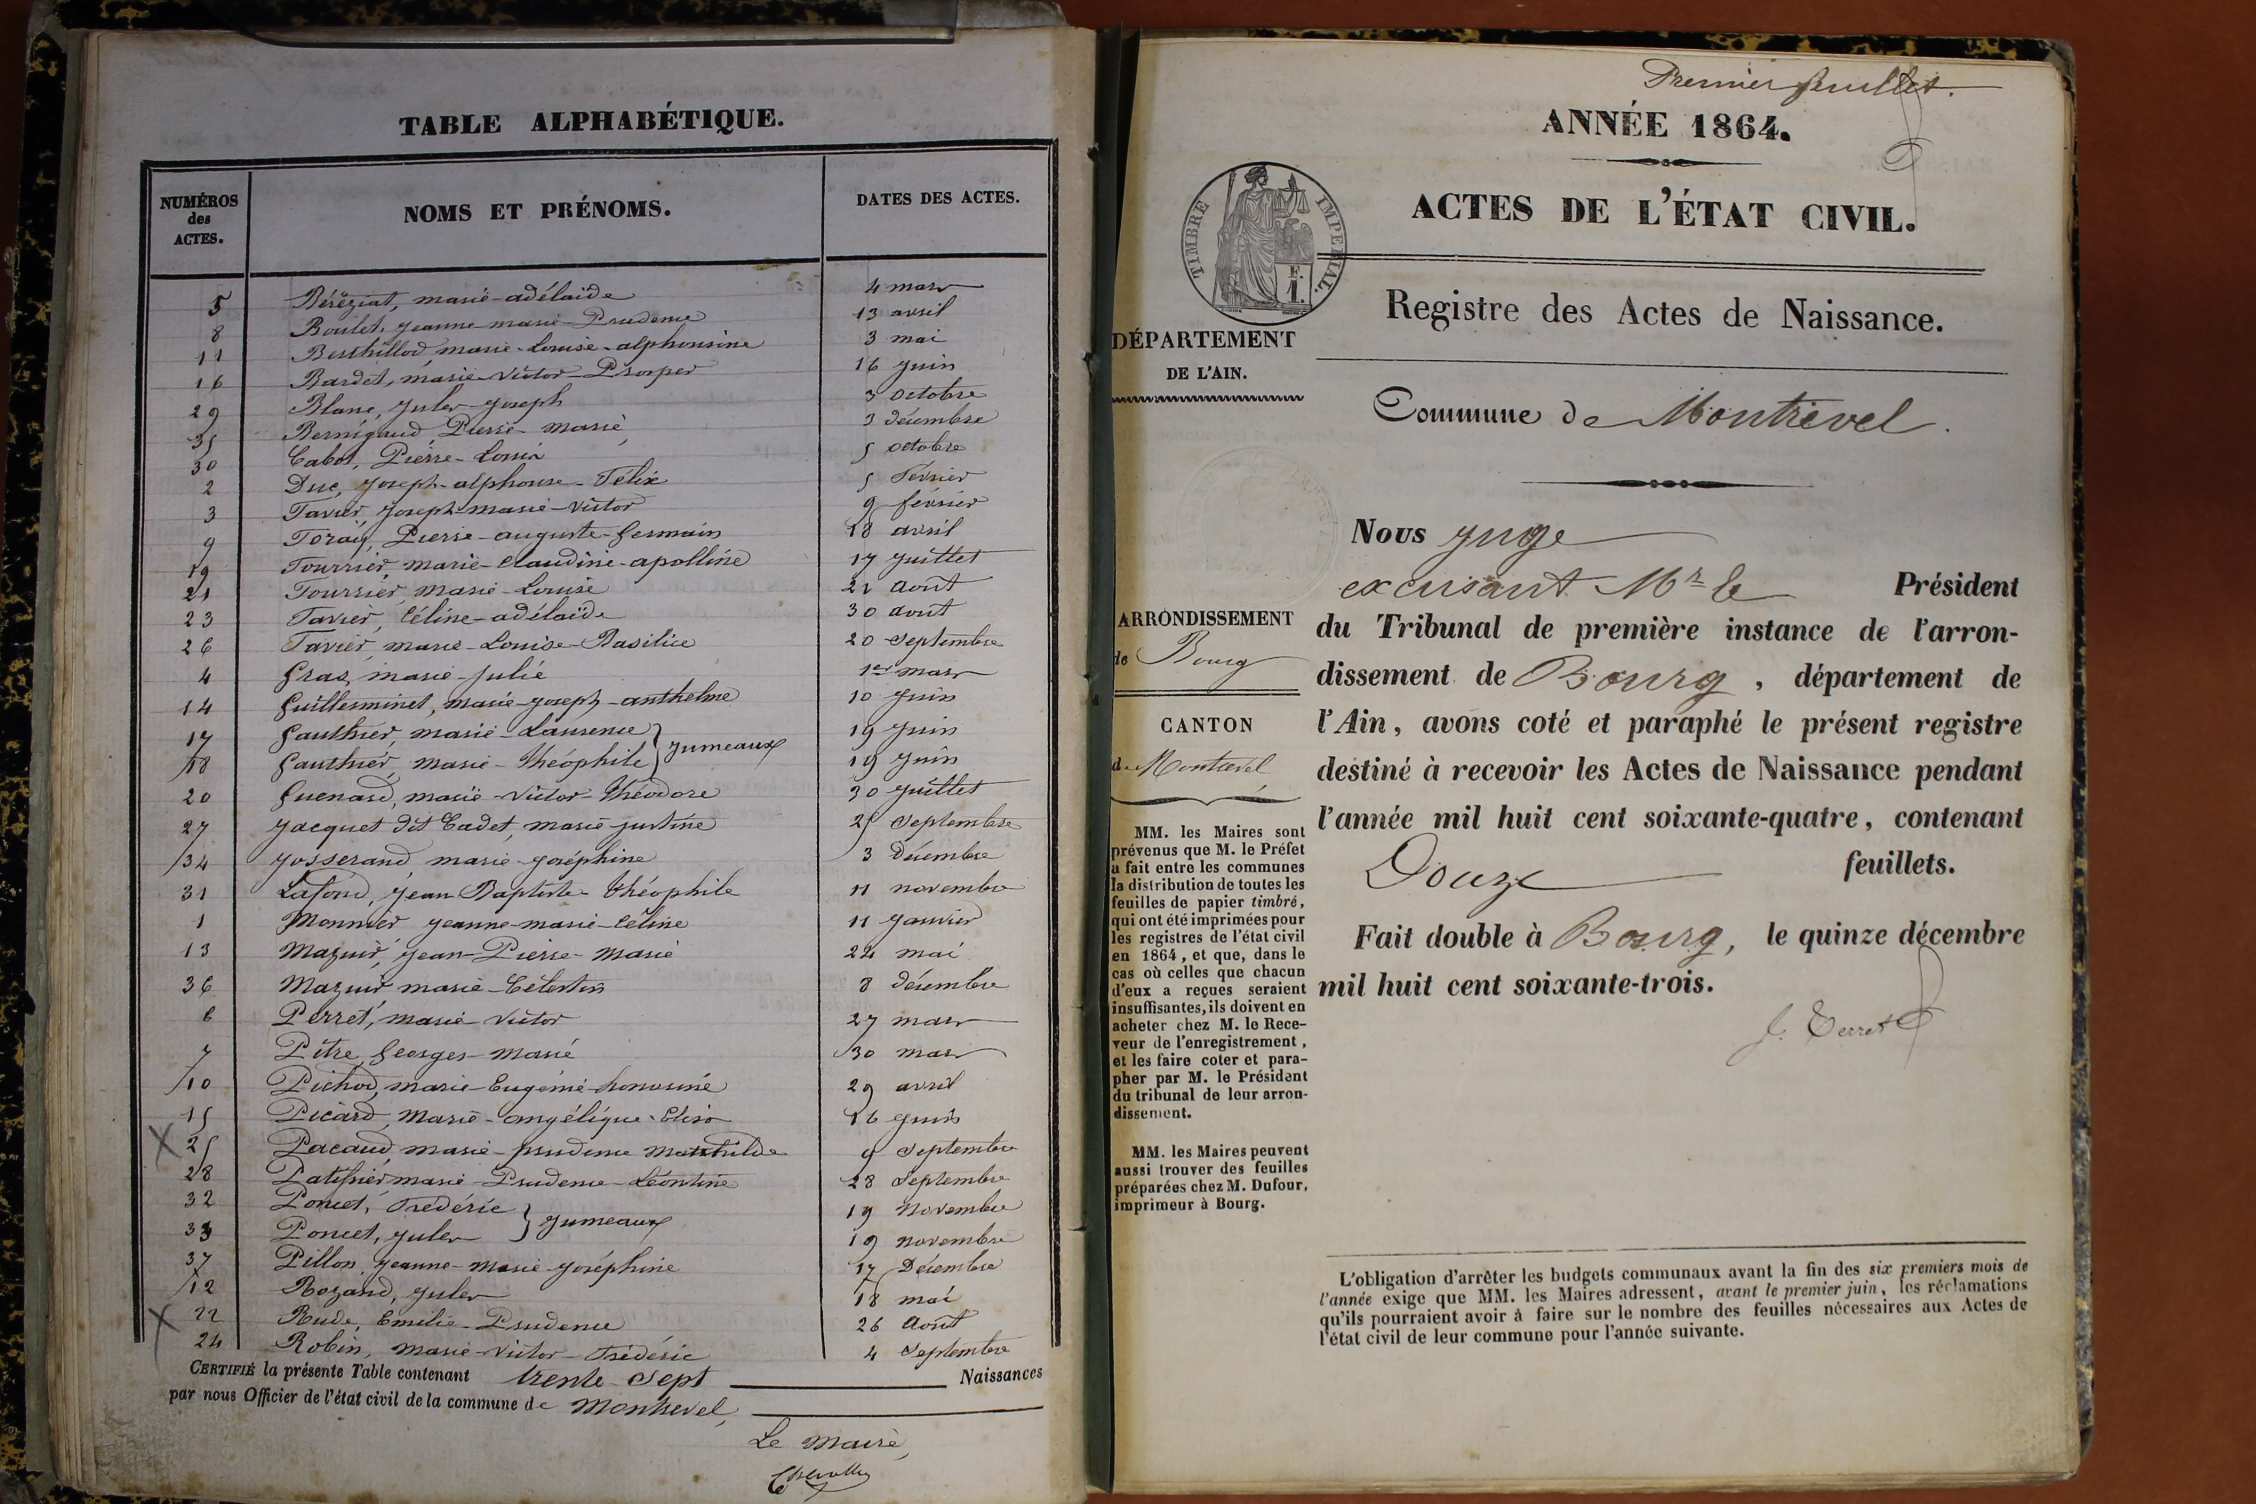 TABLE ALPHABÉTIQUE.
NUMÉROS des ACTES.
NOMS ET PRÉNOMS.
DATES DES ACTES.
5 Béréziat, marie-adélaïde 4 mars
8 Boulet, jeanne-marie-Prudence 13 avril
11 Berthillod marie-Louise-alphonsine 3 mai
16 Bardet, marie-Victor-Prosper 16 juin
29 Blanc, jules-joseph 3 octobre
35 Bernigaud Pierre-marie 3 décembre
30 Cabot, Pierre-Louis 5 octobre
2 Duc, joseph-alphonse-Félix 5 février
3 Favier, joseph-marie-Victor 9 février
9 Foray, Pierre-auguste-Germain 18 avril
19 Fourrier, marie-claudine-apolline 17 juillet
21 Fourrier, marie-Louise 21 août
23 Favier, Céline-adélaïde 30 août
26 Favier, marie-Louise-Basilice 20 septembre
4 Gras, marie-julie 1er mars
14 Guilleminet, marie-joseph-anthelme 10 juin
17 Gauthier, marie-Laurence } jumeaux 19 juin
18 Gauthier, marie-théophile 19 juin
20 Guenard, marie-victor-théodore 30 juillet
27 Jacquet dit Cadet, marie-justine 25 septembre
34 Josserand marie-joséphine 3 décembre
31 Lafond, jean-Baptiste-théophile 11 novembre
1 Monnier jeanne-marie-Céline 11 janvier
13 Mazuir, jean-Pierre-marie 24 mai
36 Mazuir marie-Célestin 8 décembre
6 Perret, marie-victor 27 mars
7 Pitre, Georges-marie 30 mars
10 Pichod, marie-Eugénie-honorine 29 avril
15 Picard, Marie-angélique-Elisa 16 juin
25 Pacaud, marie-prudence mathilde 9 septembre
28 Patissier marie-Prudence-Léontine 28 septembre
32 Poncet, Frédéric } jumeaux 19 Novembre
33 Poncet, jules 19 novembre
37 Pillon, jeanne-marie-joséphine 17 Décembre
12 Rozand, jules 18 mai
22 Rude, Emilie-Prudence 26 août
24 Robin, marie-victor-Frédéric 4 septembre
CERTIFIÉ la présente Table contenant trente-sept Naissances
par nous Officier de l'état civil de la commune de Montrevel,
Le maire,
Premier feuillet.
ANNÉE 1864.
ACTES DE L'ÉTAT CIVIL.
TIMBRE IMPERIAL.
Registre des Actes de Naissance.
DÉPARTEMENT
DE L'AIN.
Commune de Montrevel.
ARRONDISSEMENT
de Bourg
CANTON
de Montrevel
MM. les Maires sont
prévenus que M. le Préfet
a fait entre les communes
la distribution de toutes les
feuilles de papier timbré,
qui ont été imprimées pour
les registres de l'état civil
en 1864, et que, dans le
cas où celles que chacun
d'eux a reçues seraient
insuffisantes, ils doivent en
acheter chez M. le Rece-
veur de l'enregistrement,
et les faire coter et para-
pher par M. le Président
du tribunal de leur arron-
dissement.
MM. les Maires peuvent
aussi trouver des feuilles
préparées chez M. Dufour,
imprimeur à Bourg.
Nous juge
excusant Mr le Président
du Tribunal de première instance de l'arron-
dissement de Bourg, département de
l'Ain, avons coté et paraphé le présent registre
destiné à recevoir les Actes de Naissance pendant
l'année mil huit cent soixante-quatre, contenant
Douze feuillets.
Fait double à Bourg, le quinze décembre
mil huit cent soixante-trois.
L'obligation d'arrêter les budgets communaux avant la fin des six premiers mois de
l'année exige que MM. les Maires adressent, avant le premier juin, les réclamations
qu'ils pourraient avoir à faire sur le nombre des feuilles nécessaires aux Actes de
l'état civil de leur commune pour l'année suivante.